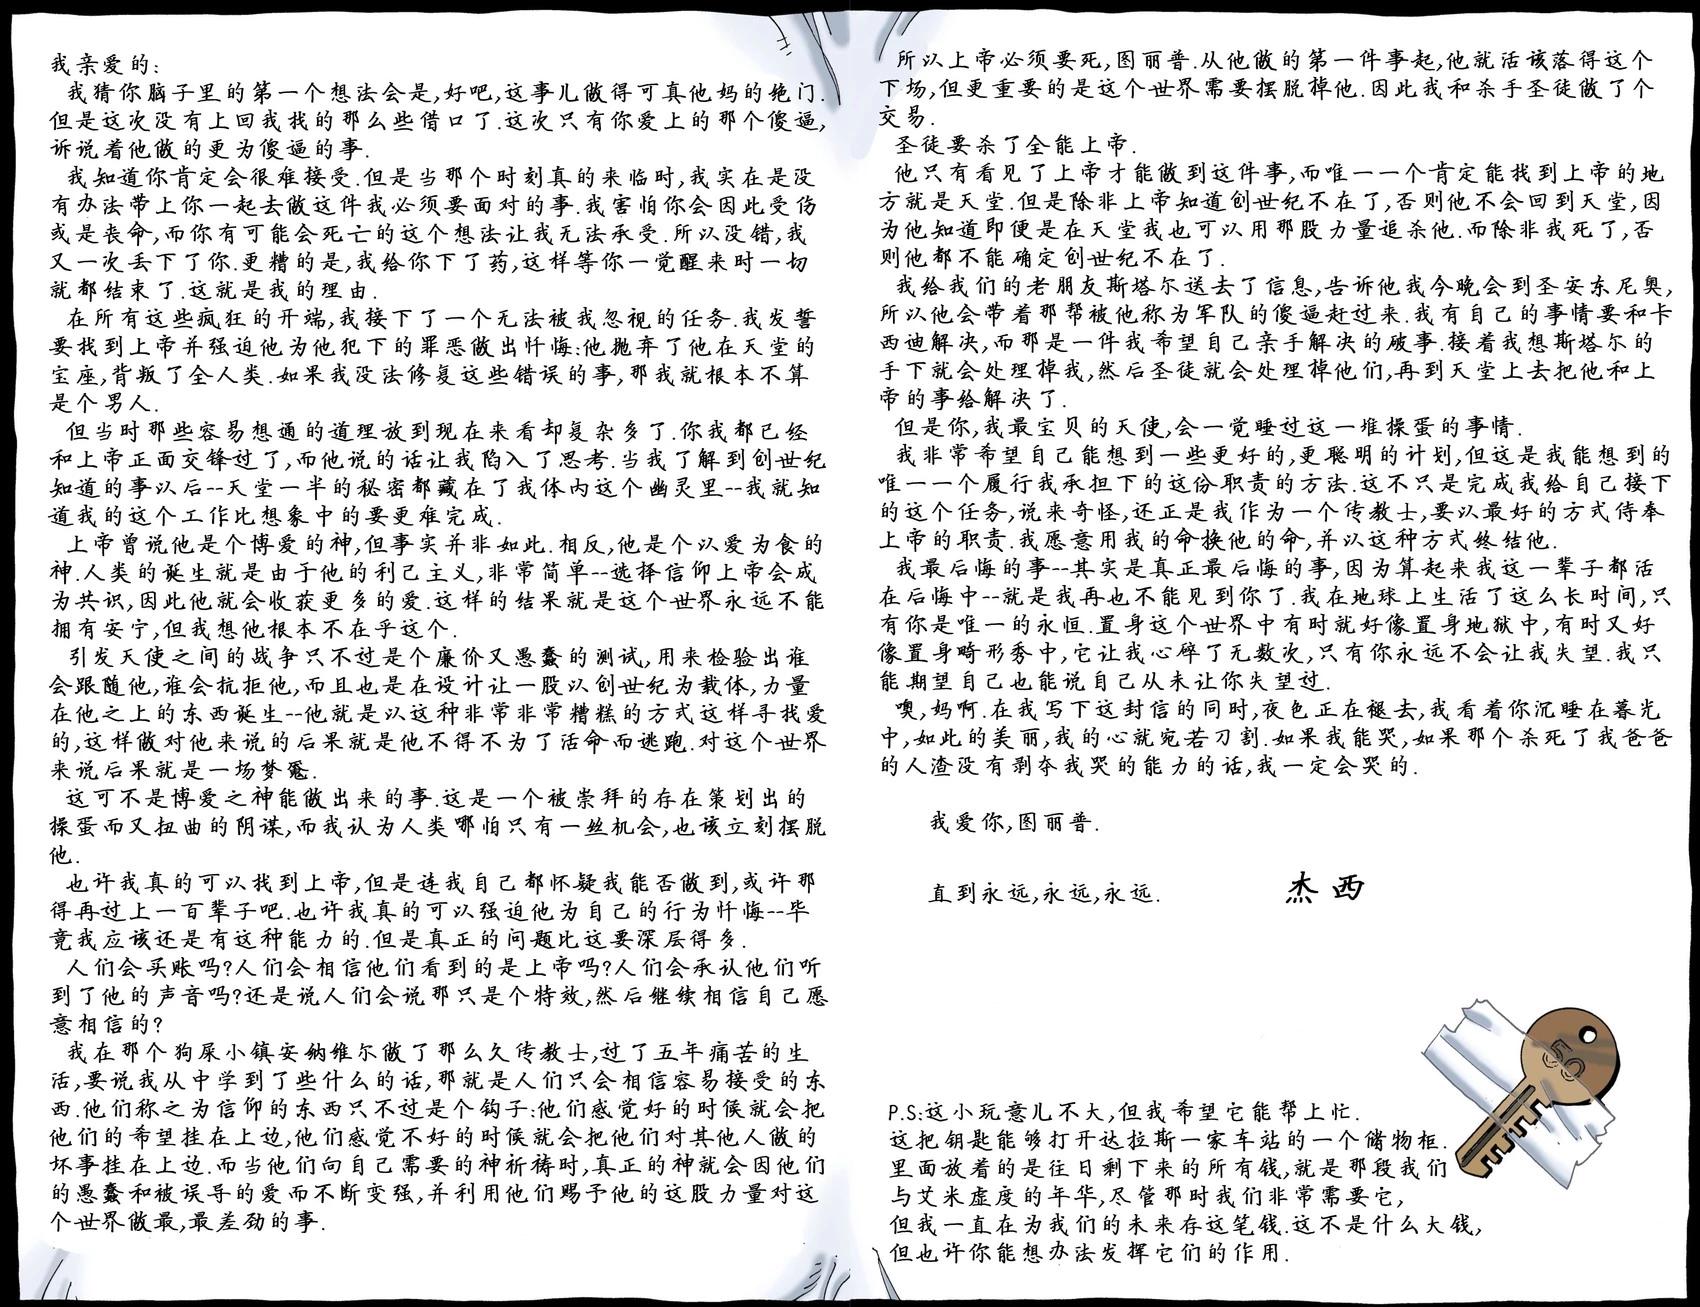 我亲爱的:
我猜你脑子里的第一个想法会是,好吧,这事儿做得可真他妈的绝门.
但是这次没有上回我找的那么些借口了.这次只有你爱上的那个傻逼,
诉说着他做的更为傻逼的事.
我知道你肯定会很难接受.但是当那个时刻真的来临时,我实在是没
有办法带上你一起去做这件我必须要面对的事.我害怕你会因此受伤
或是丧命,而你有可能会死亡的这个想法让我无法承受.所以没错,我
又一次丢下了你.更糟的是,我给你下了药,这样等你一觉醒来时一切
就都结束了.这就是我的理由.
在所有这些疯狂的开端,我接下了一个无法被我忽视的任务.我发誓
要找到上帝并强迫他为他犯下的罪恶做出忏悔:他抛弃了他在天堂的
宝座,背叛了全人类.如果我没法修复这些错误的事,那我就根本不算
是个男人.
但当时那些容易想通的道理放到现在来看却复杂多了.你我都已经
和上帝正面交锋过了,而他说的话让我陷入了思考.当我了解到创世纪
知道的事以后--天堂一半的秘密都藏在了我体内这个幽灵里--我就知
道我的这个工作比想象中的要更难完成.
上帝曾说他是个博爱的神,但事实并非如此.相反,他是个以爱为食的
神.人类的诞生就是由于他的利己主义,非常简单--选择信仰上帝会成
为共识,因此他就会收获更多的爱.这样的结果就是这个世界永远不能
拥有安宁,但我想他根本不在乎这个.
引发天使之间的战争只不过是个廉价又愚蠢的测试,用来检验出谁
会跟随他,谁会抗拒他,而且也是在设计让一股以创世纪为载体,力量
在他之上的东西诞生--他就是以这种非常非常糟糕的方式这样寻找爱
的,这样做对他来说的后果就是他不得不为了活命而逃跑.对这个世界
来说后果就是一场梦魇.
这可不是博爱之神能做出来的事.这是一个被崇拜的存在策划出的
操蛋而又扭曲的阴谋,而我认为人类哪怕只有一丝机会,也该立刻摆脱
他.
也许我真的可以找到上帝,但是连我自己都怀疑我能否做到,或许那
得再过上一百辈子吧.也许我真的可以强迫他为自己的行为忏悔--毕
竟我应该还是有这种能力的.但是真正的问题比这要深层得多.
人们会买账吗?人们会相信他们看到的是上帝吗?人们会承认他们听
到了他的声音吗?还是说人们会说那只是个特效,然后继续相信自己愿
意相信的?
我在那个狗屎小镇安纳维尔做了那么久传教士,过了五年痛苦的生
活,要说我从中学到了些什么的话,那就是人们只会相信容易接受的东
西.他们称之为信仰的东西只不过是个钩子:他们感觉好的时候就会把
他们的希望挂在上边,他们感觉不好的时候就会把他们对其他人做的
坏事挂在上边.而当他们向自己需要的神祈祷时,真正的神就会因他们
的愚蠢和被误导的爱而不断变强,并利用他们赐予他的这股力量对这
个世界做最,最差劲的事.
所以上帝必须要死,图丽普.从他做的第一件事起,他就活该落得这个
下场,但更重要的是这个世界需要摆脱掉他.因此我和杀手圣徒做了个
交易.
圣徒要杀了全能上帝.
他只有看见了上帝才能做到这件事,而唯一一个肯定能找到上帝的地
方就是天堂.但是除非上帝知道创世纪不在了,否则他不会回到天堂,因
为他知道即便是在天堂我也可以用那股力量追杀他.而除非我死了,否
则他都不能确定创世纪不在了.
我给我们的老朋友斯塔尔送去了信息,告诉他我今晚会到圣安东尼奥,
所以他会带着那帮被他称为军队的傻逼赶过来.我有自己的事情要和卡
西迪解决,而那是一件我希望自己亲手解决的破事.接着我想斯塔尔的
手下就会处理掉我,然后圣徒就会处理掉他们,再到天堂上去把他和上
帝的事给解决了.
但是你,我最宝贝的天使,会一觉睡过这一堆操蛋的事情.
我非常希望自己能想到一些更好的,更聪明的计划,但这是我能想到的
唯一一个履行我承担下的这份职责的方法.这不只是完成我给自己接下
的这个任务,说来奇怪,还正是我作为一个传教士,要以最好的方式侍奉
上帝的职责.我愿意用我的命换他的命,并以这种方式终结他.
我最后悔的事--其实是真正最后悔的事,因为算起来我这一辈子都活
在后悔中--就是我再也不能见到你了.我在地球上生活了这么长时间,只
有你是唯一的永恒.置身这个世界中有时就好像置身地狱中,有时又好
像置身畸形秀中,它让我心碎了无数次,只有你永远不会让我失望.我只
能期望自己也能说自己从未让你失望过.
噢,妈啊.在我写下这封信的同时,夜色正在褪去,我看着你沉睡在暮光
中,如此的美丽,我的心就宛若刀割.如果我能哭,如果那个杀死了我爸爸
的人渣没有剥夺我哭的能力的话,我一定会哭的.
我爱你,图丽普.
直到永远,永远,永远.
杰西
55
P.S:这小玩意儿不大,但我希望它能帮上忙.
这把钥匙能够打开达拉斯一家车站的一个储物柜.
里面放着的是往日剩下来的所有钱,就是那段我们
与艾米虚度的年华,尽管那时我们非常需要它,
但我一直在为我们的未来存这笔钱.这不是什么大钱,
但也许你能想办法发挥它们的作用.